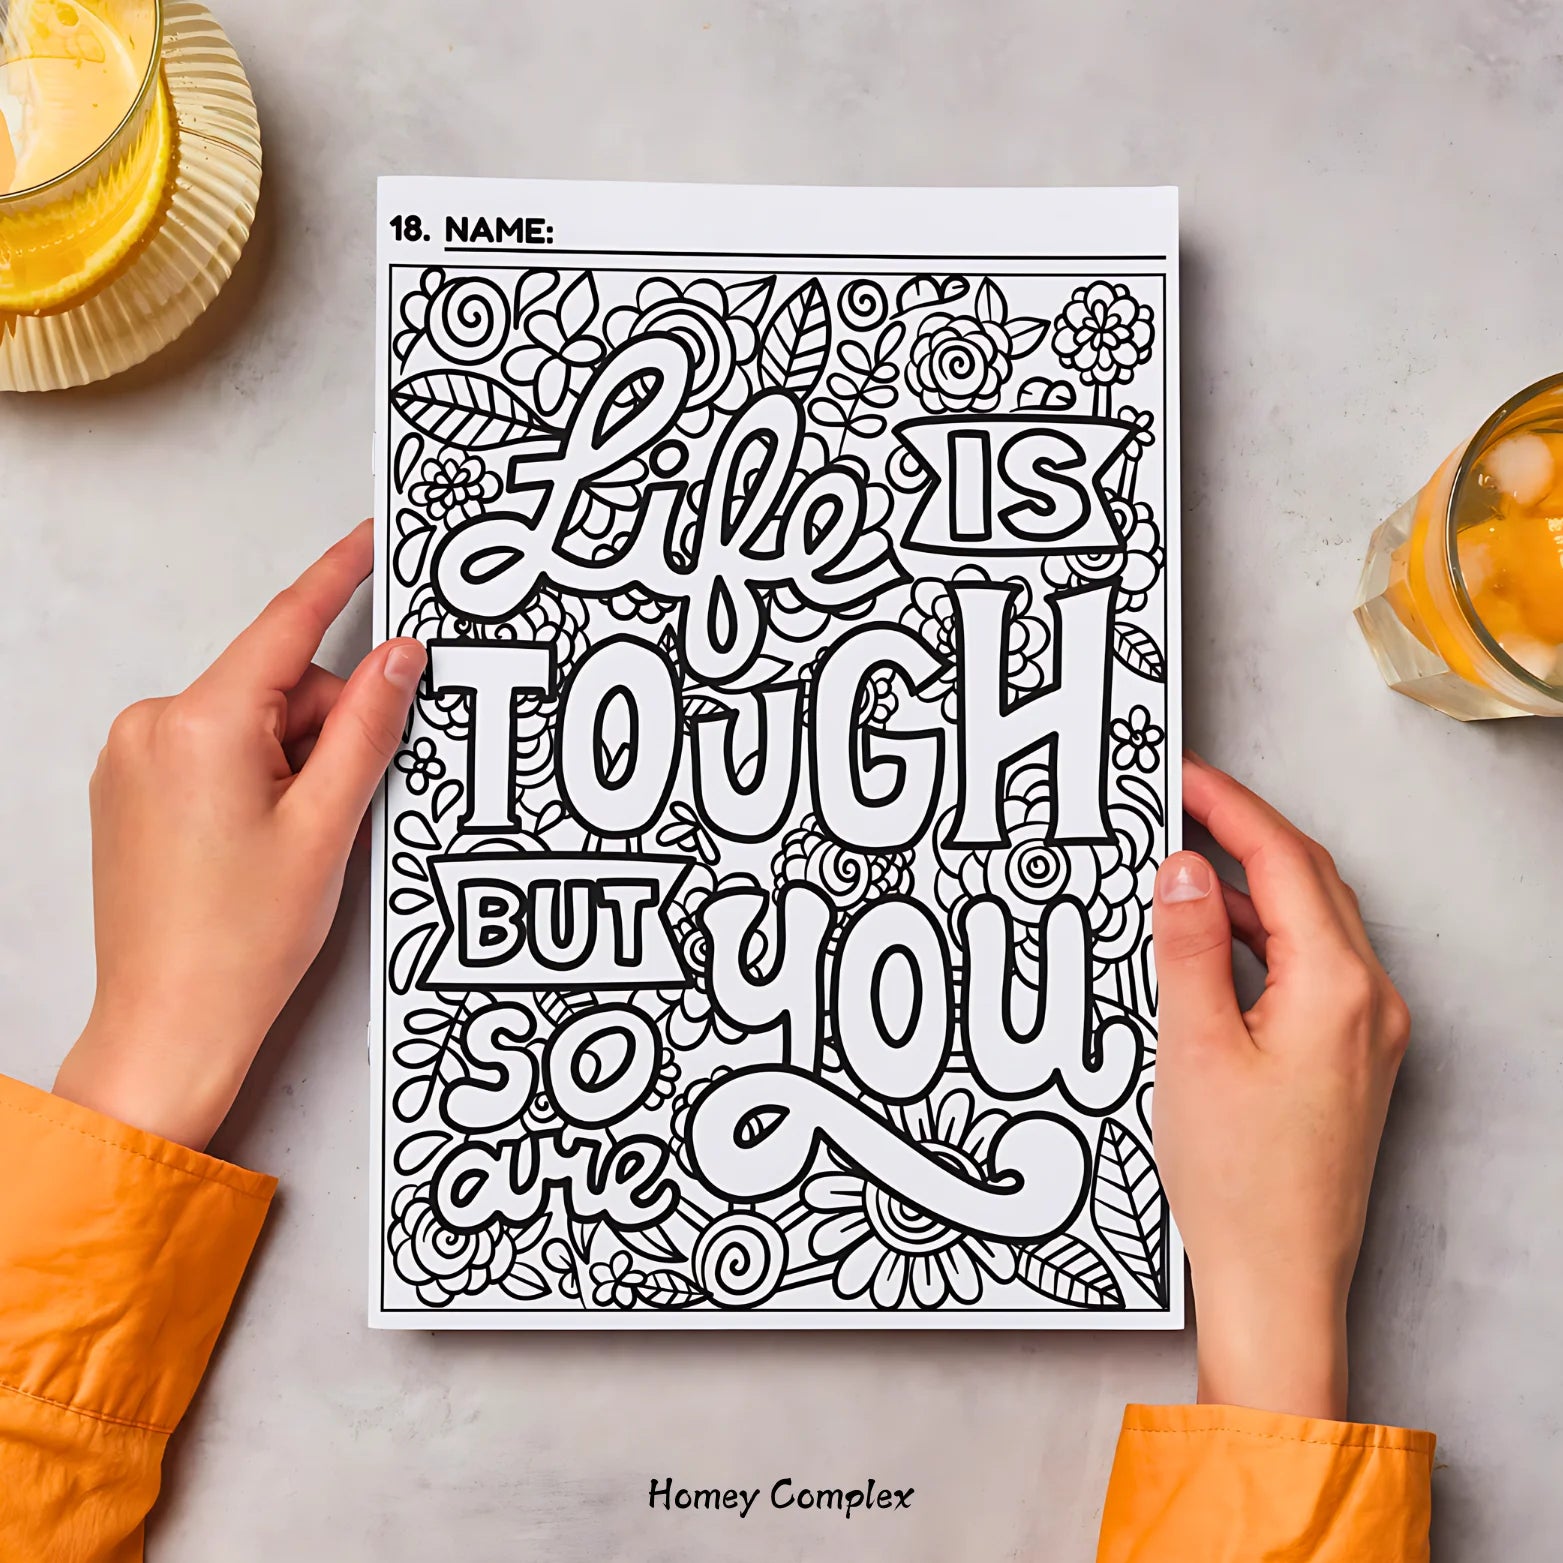 18. NAME:
Life IS
TOUGH
BUT YOU
SO
are
Homey Complex